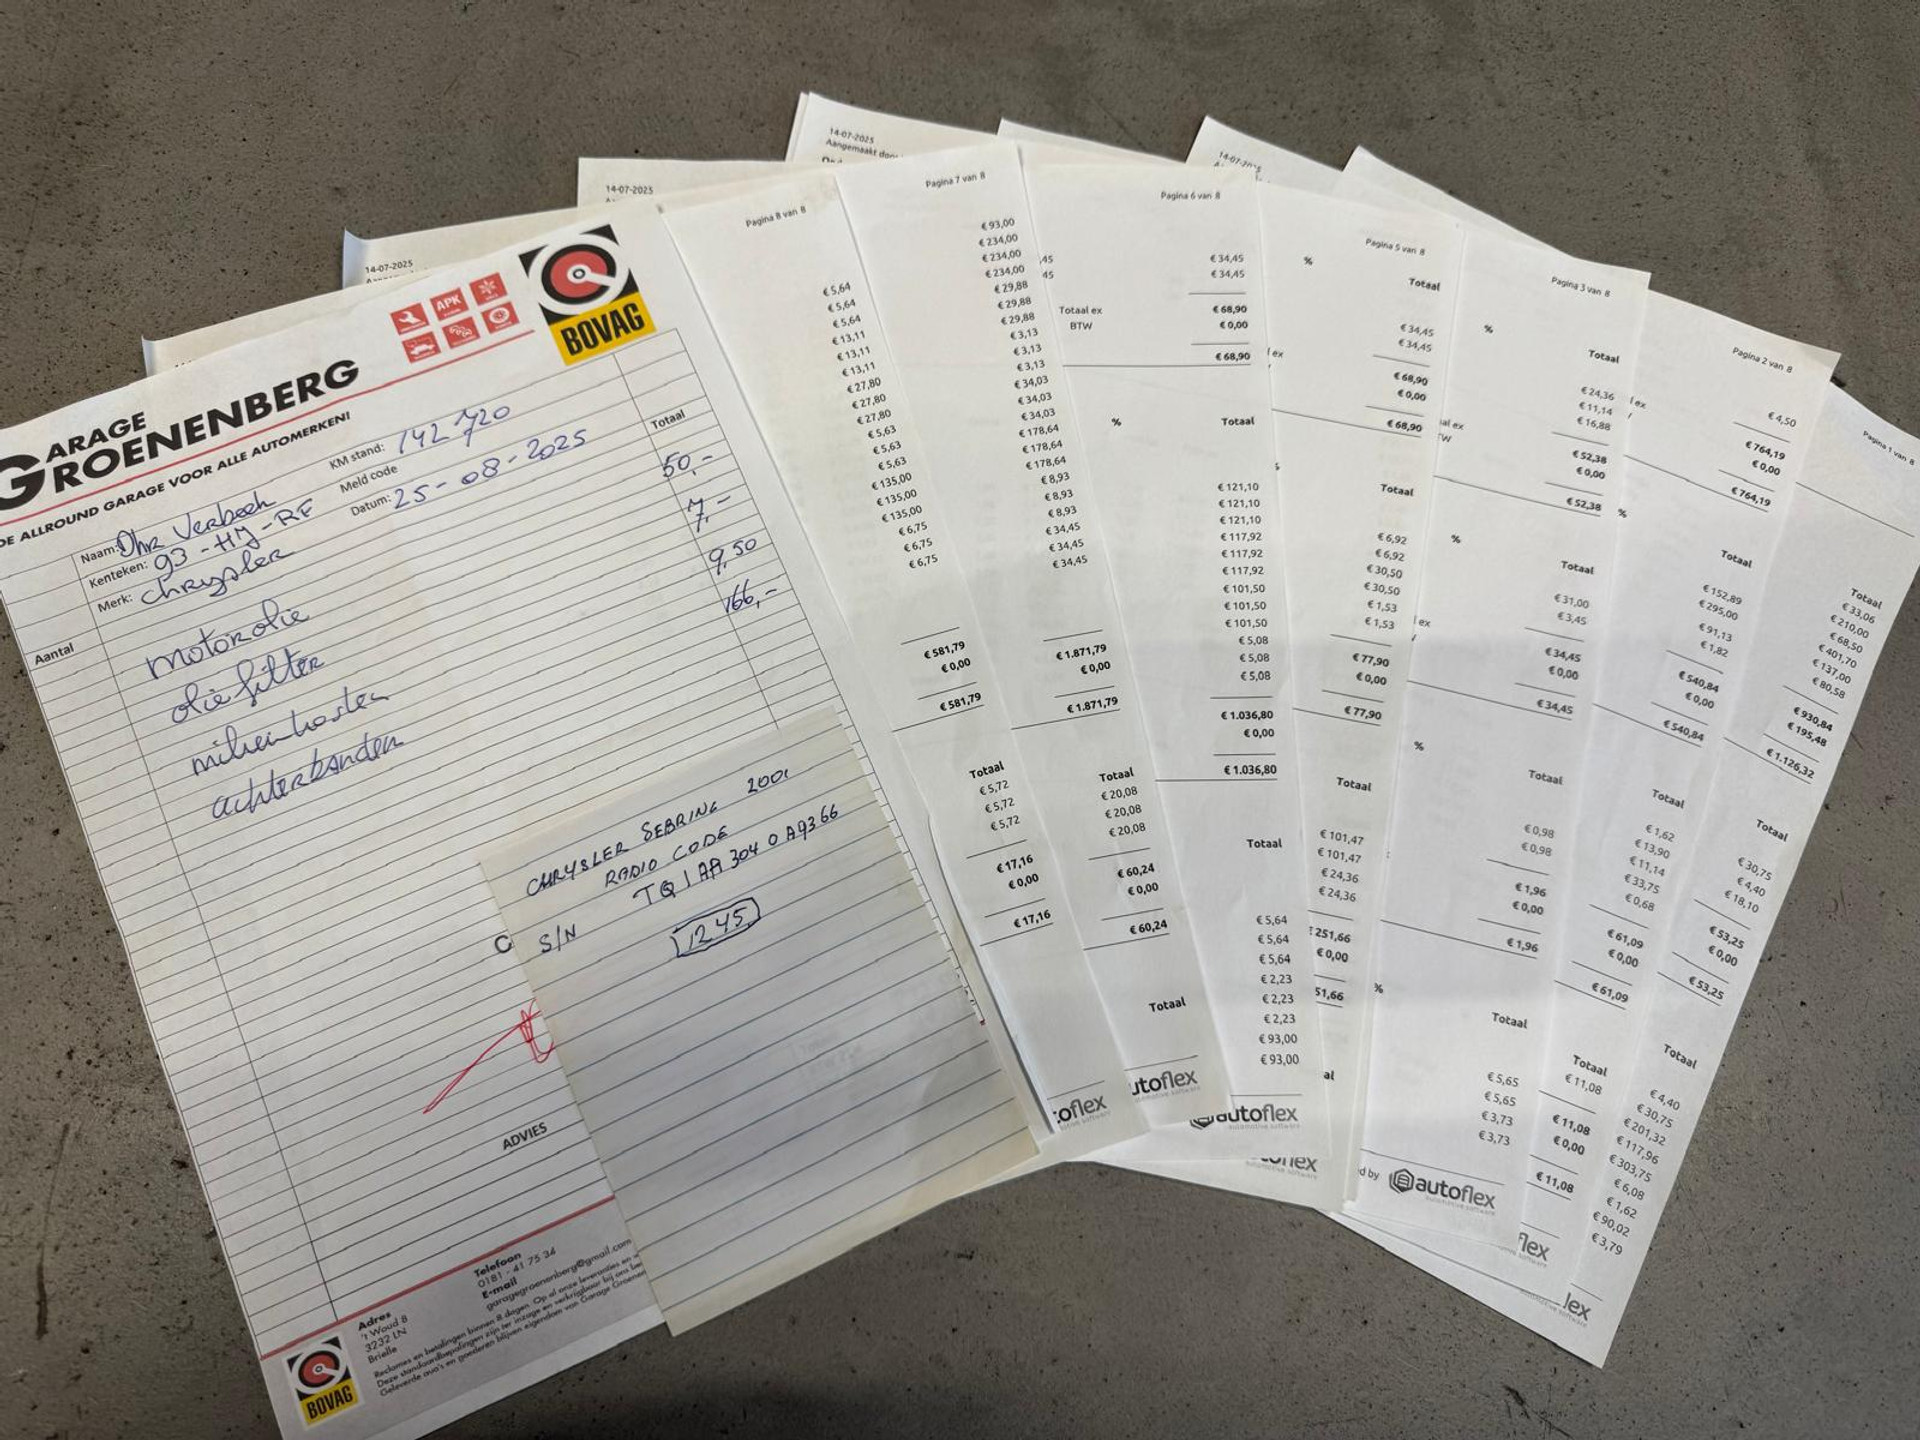 GARAGE
GROENENBERG
DE ALLROUND GARAGE VOOR ALLE AUTOMERKEN!
APK
BOVAG
KM stand: 142 720
Meld code
Datum: 25-08-2025
Naam: Dhr Verbeek
Kenteken: 93-HJ-RF
Merk: Chrysler
Aantal
Totaal
motorolie 50,-
oliefilter 7,-
milieukosten 9,50
achterbanden 166,-
ADVIES
Telefoon
0181 - 41 75 34
E-mail
garagegroenenberg@gmail.com
Adres
't Woud 8
3232 LN
Brielle
Reclames en betalingen binnen 8 dagen. Op al onze leveranties en
Deze standaardbepalingen zijn ter inzage en verkrijgbaar bij ons
Geleverde auto's en goederen blijven eigendom van Garage
BOVAG
CHRYSLER SEBRING 2001
RADIO CODE
S/N TQ1AA3040A9366
1245
14-07-2025
Pagina 8 van 8
€ 5,64
€ 5,64
€ 5,64
€ 13,11
€ 13,11
€ 13,11
€ 27,80
€ 27,80
€ 27,80
€ 5,63
€ 5,63
€ 5,63
€ 135,00
€ 135,00
€ 135,00
€ 6,75
€ 6,75
€ 6,75
€ 581,79
€ 0,00
€ 581,79
Totaal
€ 5,72
€ 5,72
€ 5,72
€ 17,16
€ 0,00
€ 17,16
oflex
14-07-2025
Pagina 7 van 8
€ 93,00
€ 234,00
€ 234,00
€ 234,00
€ 29,88
€ 29,88
€ 29,88
€ 3,13
€ 3,13
€ 3,13
€ 34,03
€ 34,03
€ 34,03
€ 178,64
€ 178,64
€ 178,64
€ 8,93
€ 8,93
€ 8,93
€ 34,45
€ 34,45
€ 34,45
€ 1.871,79
€ 0,00
€ 1.871,79
Totaal
€ 20,08
€ 20,08
€ 20,08
€ 60,24
€ 0,00
€ 60,24
Totaal
utoflex
14-07-2025
Aangemaakt door
Pagina 6 van 8
45 € 34,45
45 € 34,45
Totaal ex € 68,90
BTW € 0,00
€ 68,90
% Totaal
€ 121,10
€ 121,10
€ 121,10
€ 117,92
€ 117,92
€ 117,92
€ 101,50
€ 101,50
€ 101,50
€ 5,08
€ 5,08
€ 5,08
€ 1.036,80
€ 0,00
€ 1.036,80
Totaal
€ 5,64
€ 5,64
€ 5,64
€ 2,23
€ 2,23
€ 2,23
€ 93,00
€ 93,00
autoflex
automotive software
Pagina 5 van 8
% Totaal
€ 34,45
€ 34,45
ex € 68,90
€ 0,00
€ 68,90
Totaal
€ 6,92
€ 6,92
€ 30,50
€ 30,50
€ 1,53
€ 1,53
€ 77,90
€ 0,00
€ 77,90
Totaal
€ 101,47
€ 101,47
€ 24,36
€ 24,36
€ 251,66
€ 0,00
51,66
al
14-07-2025
Pagina 3 van 8
% Totaal
€ 24,36
€ 11,14
€ 16,88
al ex € 52,38
TW € 0,00
€ 52,38
% Totaal
€ 31,00
€ 3,45
ex € 34,45
€ 0,00
€ 34,45
% Totaal
€ 0,98
€ 0,98
€ 1,96
€ 0,00
€ 1,96
% Totaal
€ 5,65
€ 5,65
€ 3,73
€ 3,73
d by autoflex
automotive software
Pagina 2 van 8
€ 4,50
ex € 764,19
€ 0,00
€ 764,19
% Totaal
€ 152,89
€ 295,00
€ 91,13
€ 1,82
€ 540,84
€ 0,00
€ 540,84
Totaal
€ 1,62
€ 13,90
€ 11,14
€ 33,75
€ 0,68
€ 61,09
€ 0,00
€ 61,09
Totaal
€ 11,08
€ 11,08
€ 0,00
€ 11,08
flex
Pagina 1 van 8
Totaal
€ 33,06
€ 210,00
€ 68,50
€ 401,70
€ 137,00
€ 80,58
€ 930,84
€ 195,48
€ 1.126,32
Totaal
€ 30,75
€ 4,40
€ 18,10
€ 53,25
€ 0,00
€ 53,25
Totaal
€ 4,40
€ 30,75
€ 201,32
€ 117,96
€ 303,75
€ 6,08
€ 1,62
€ 90,02
€ 3,79
lex